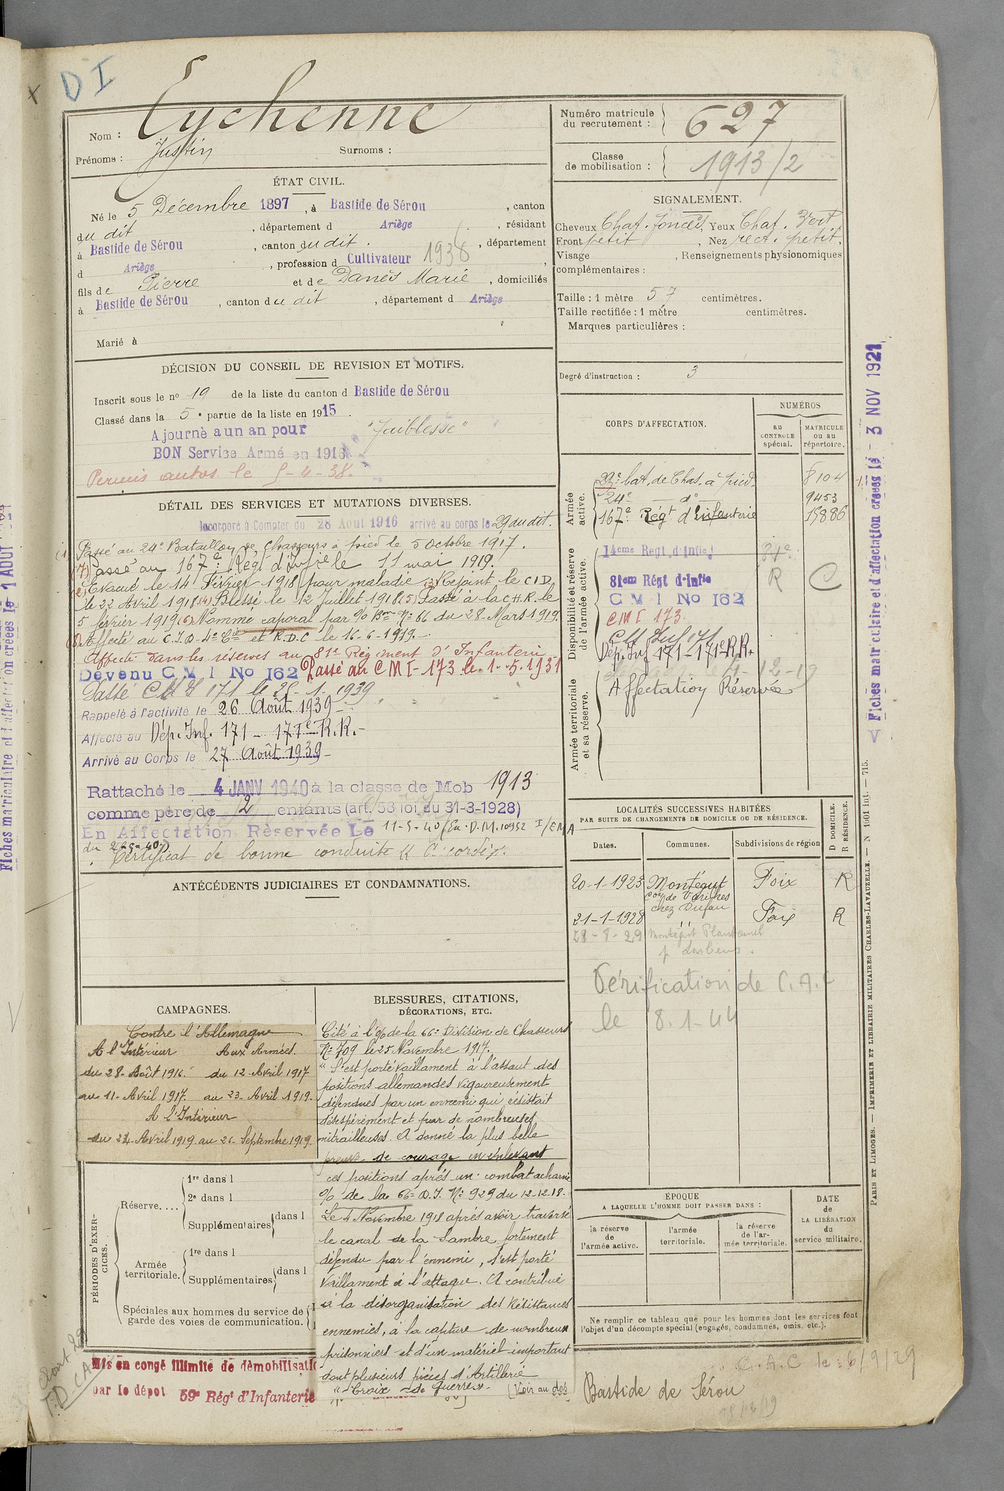 D I
Nom : Eychenne
Prénoms : Justin Surnoms :
Numéro matricule du recrutement : 627
Classe de mobilisation : 1913/2
ÉTAT CIVIL.
Né le 5 Décembre 1897, à Bastide de Sérou, canton
du dit, département d Ariège, résidant
à Bastide de Sérou, canton du dit. 1938, département
d Ariège, profession d Cultivateur
fils de Pierre et de Danès Marie, domiciliés
à Bastide de Sérou, canton du dit, département d Ariège
Marié à
SIGNALEMENT.
Cheveux Chat. foncé, Yeux Chat. Vert.
Front petit, Nez rect. petit.
Visage , Renseignements physionomiques
complémentaires :
Taille : 1 mètre 57 centimètres.
Taille rectifiée : 1 mètre centimètres.
Marques particulières :
Degré d'instruction : 3
DÉCISION DU CONSEIL DE REVISION ET MOTIFS.
Inscrit sous le nº 19 de la liste du canton d Bastide de Sérou
Classé dans la 5e partie de la liste en 1915.
Ajourné a un an pour "faiblesse"
BON Service Armé en 1916
Permis autos le 5-4-38.
DÉTAIL DES SERVICES ET MUTATIONS DIVERSES.
Incorporé à Compter du 28 Aout 1916 arrivé au corps le 29 du dit.
Passé au 24e Bataillon de Chasseurs à pied le 5 octobre 1917.
(7) Passé au 167e Régt d'Infie le 11 mai 1919.
(2) Evacué le 14 Février 1918 pour maladie (3) Rejoint le C.I.D.
le 22 Avril 1918 (4) Blessé le 12 Juillet 1918 (5) Passé à la C.H.R. le
5 février 1919 (6) Nommé caporal par 90 Bon No 66 du 28 Mars 1919.
Affecté au C.I.D. 4e Cie et R.D.C le 16-6-1919.
Affecté dans les réserves au 81e Régiment d'Infanterie
Devenu C M I No 162 Passé au CMI-173 le 1-5-1931
Passé CMI 171 le 25-1-1939.
Rappelé à l'activité le 26 Août 1939-
Affecté au Dép. Inf. 171 - 171e R.R.-
Arrivé au Corps le 27 Août 1939-
Rattaché le 4 JANV 1940 à la classe de Mob 1913
comme père de 2 enfants (art. 58 loi du 31-3-1928)
En Affectation Réservée Le 11-5-40 D.M. 10952 I/EMA
Certificat de bonne conduite
CORPS D'AFFECTATION.
NUMÉROS
AU CONTROLE spécial.
MATRICULE OU AU répertoire.
Armée active.
22e bat. de Chas. à pied. 8104
24e d° 9453
167e Régt d'Infanterie 15886
Disponibilité et réserve de l'armée active.
14eme Regt. d'Infie
81em Régt d'Infie R C
C M I No 162
CMI 173
Dép. Inf. 171 - 171e R.R.
Affectation Réservée
Armée territoriale et sa réserve.
LOCALITÉS SUCCESSIVES HABITÉES
PAR SUITE DE CHANGEMENTS DE DOMICILE OU DE RÉSIDENCE.
Dates. Communes. Subdivisions de région D DOMICILE. R RÉSIDENCE.
20-1-1923 Montégut Foix R
21-1-1928 chez Dufau Foix R
28-8-29 Montégut Plantaurel
Vérification de C.A.F
le 8.1-44
ANTÉCÉDENTS JUDICIAIRES ET CONDAMNATIONS.
CAMPAGNES.
Contre l'Allemagne
A l'Intérieur Aux Armées
du 28 Août 1916 du 12 Avril 1917
au 11 Avril 1917 au 23 Avril 1919
A l'Intérieur
du 24 Avril 1919 au 26 Septembre 1919
BLESSURES, CITATIONS,
DÉCORATIONS, ETC.
Cité à l'o/ de la 66e Division de Chasseurs
No 709 le 25 Novembre 1917.
"S'est porté vaillament à l'assaut des
positions allemandes vigoureusement
défendues par un ennemi qui résistait
désespérément et par de nombreuses
mitrailleuses. A donné la plus belle
preuve de courage en enlevant
ces positions après un combat acharné
o/ de la 66e D.I. No 929 du 12-12-18.
Le 4 Novembre 1918 après avoir traversé
le canal de la Sambre fortement
défendu par l'ennemi, s'est porté
vaillament à l'attaque. A contribué
à la désorganisation des résistances
ennemies, à la capture de nombreux
prisonniers et d'un matériel important
dont plusieurs pièces d'Artillerie
"Croix de Guerre". (Voir au dos)
PÉRIODES D'EXERCICES.
Réserve.... 1re dans l
2e dans l
Supplémentaires dans l
Armée territoriale. 1re dans l
Supplémentaires dans l
Spéciales aux hommes du service de garde des voies de communication.
ÉPOQUE
A LAQUELLE L'HOMME DOIT PASSER DANS :
la réserve de l'armée active.
l'armée territoriale.
la réserve de l'armée territoriale.
DATE de LA LIBÉRATION du service militaire.
Ne remplir ce tableau que pour les hommes dont les services font
l'objet d'un décompte spécial (engagés, condamnés, omis, etc.).
Mis en congé illimité de démobilisation
par le dépôt 59e Régt d'Infanterie
Bastide de Sérou
C.A.C le 26/9/29
Fiches matriculaire et d'affectation créées le 3 NOV 1921
PARIS ET LIMOGES. — IMPRIMERIE ET LIBRAIRIE MILITAIRES CHARLES-LAVAUZELLE. — N° 1901 int. — 715.
Fiches matriculaire et d'affectation créées le 1 AOUT